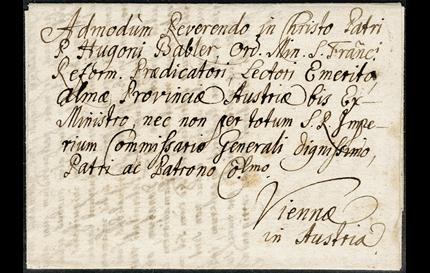 Admodùm Reverendo in Christo Patri
P. Hugoni Babler, Ord. Min. S. Franc:
Reform. Prædicatori, Lectori Emerito,
Almæ Provinciæ Austriæ bis Ex-
Ministro, nec non per totum S. R. Impe-
rium Commissario Generali dignissimo,
Patri ac Patrono Colmo.
Viennæ
in Austria